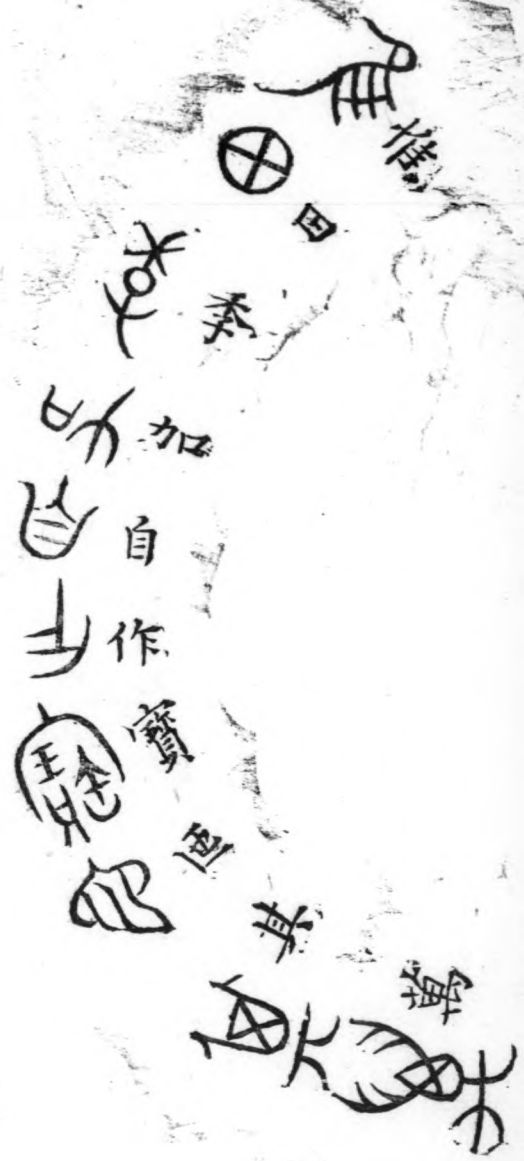 惟田季加自作寶匜其萬